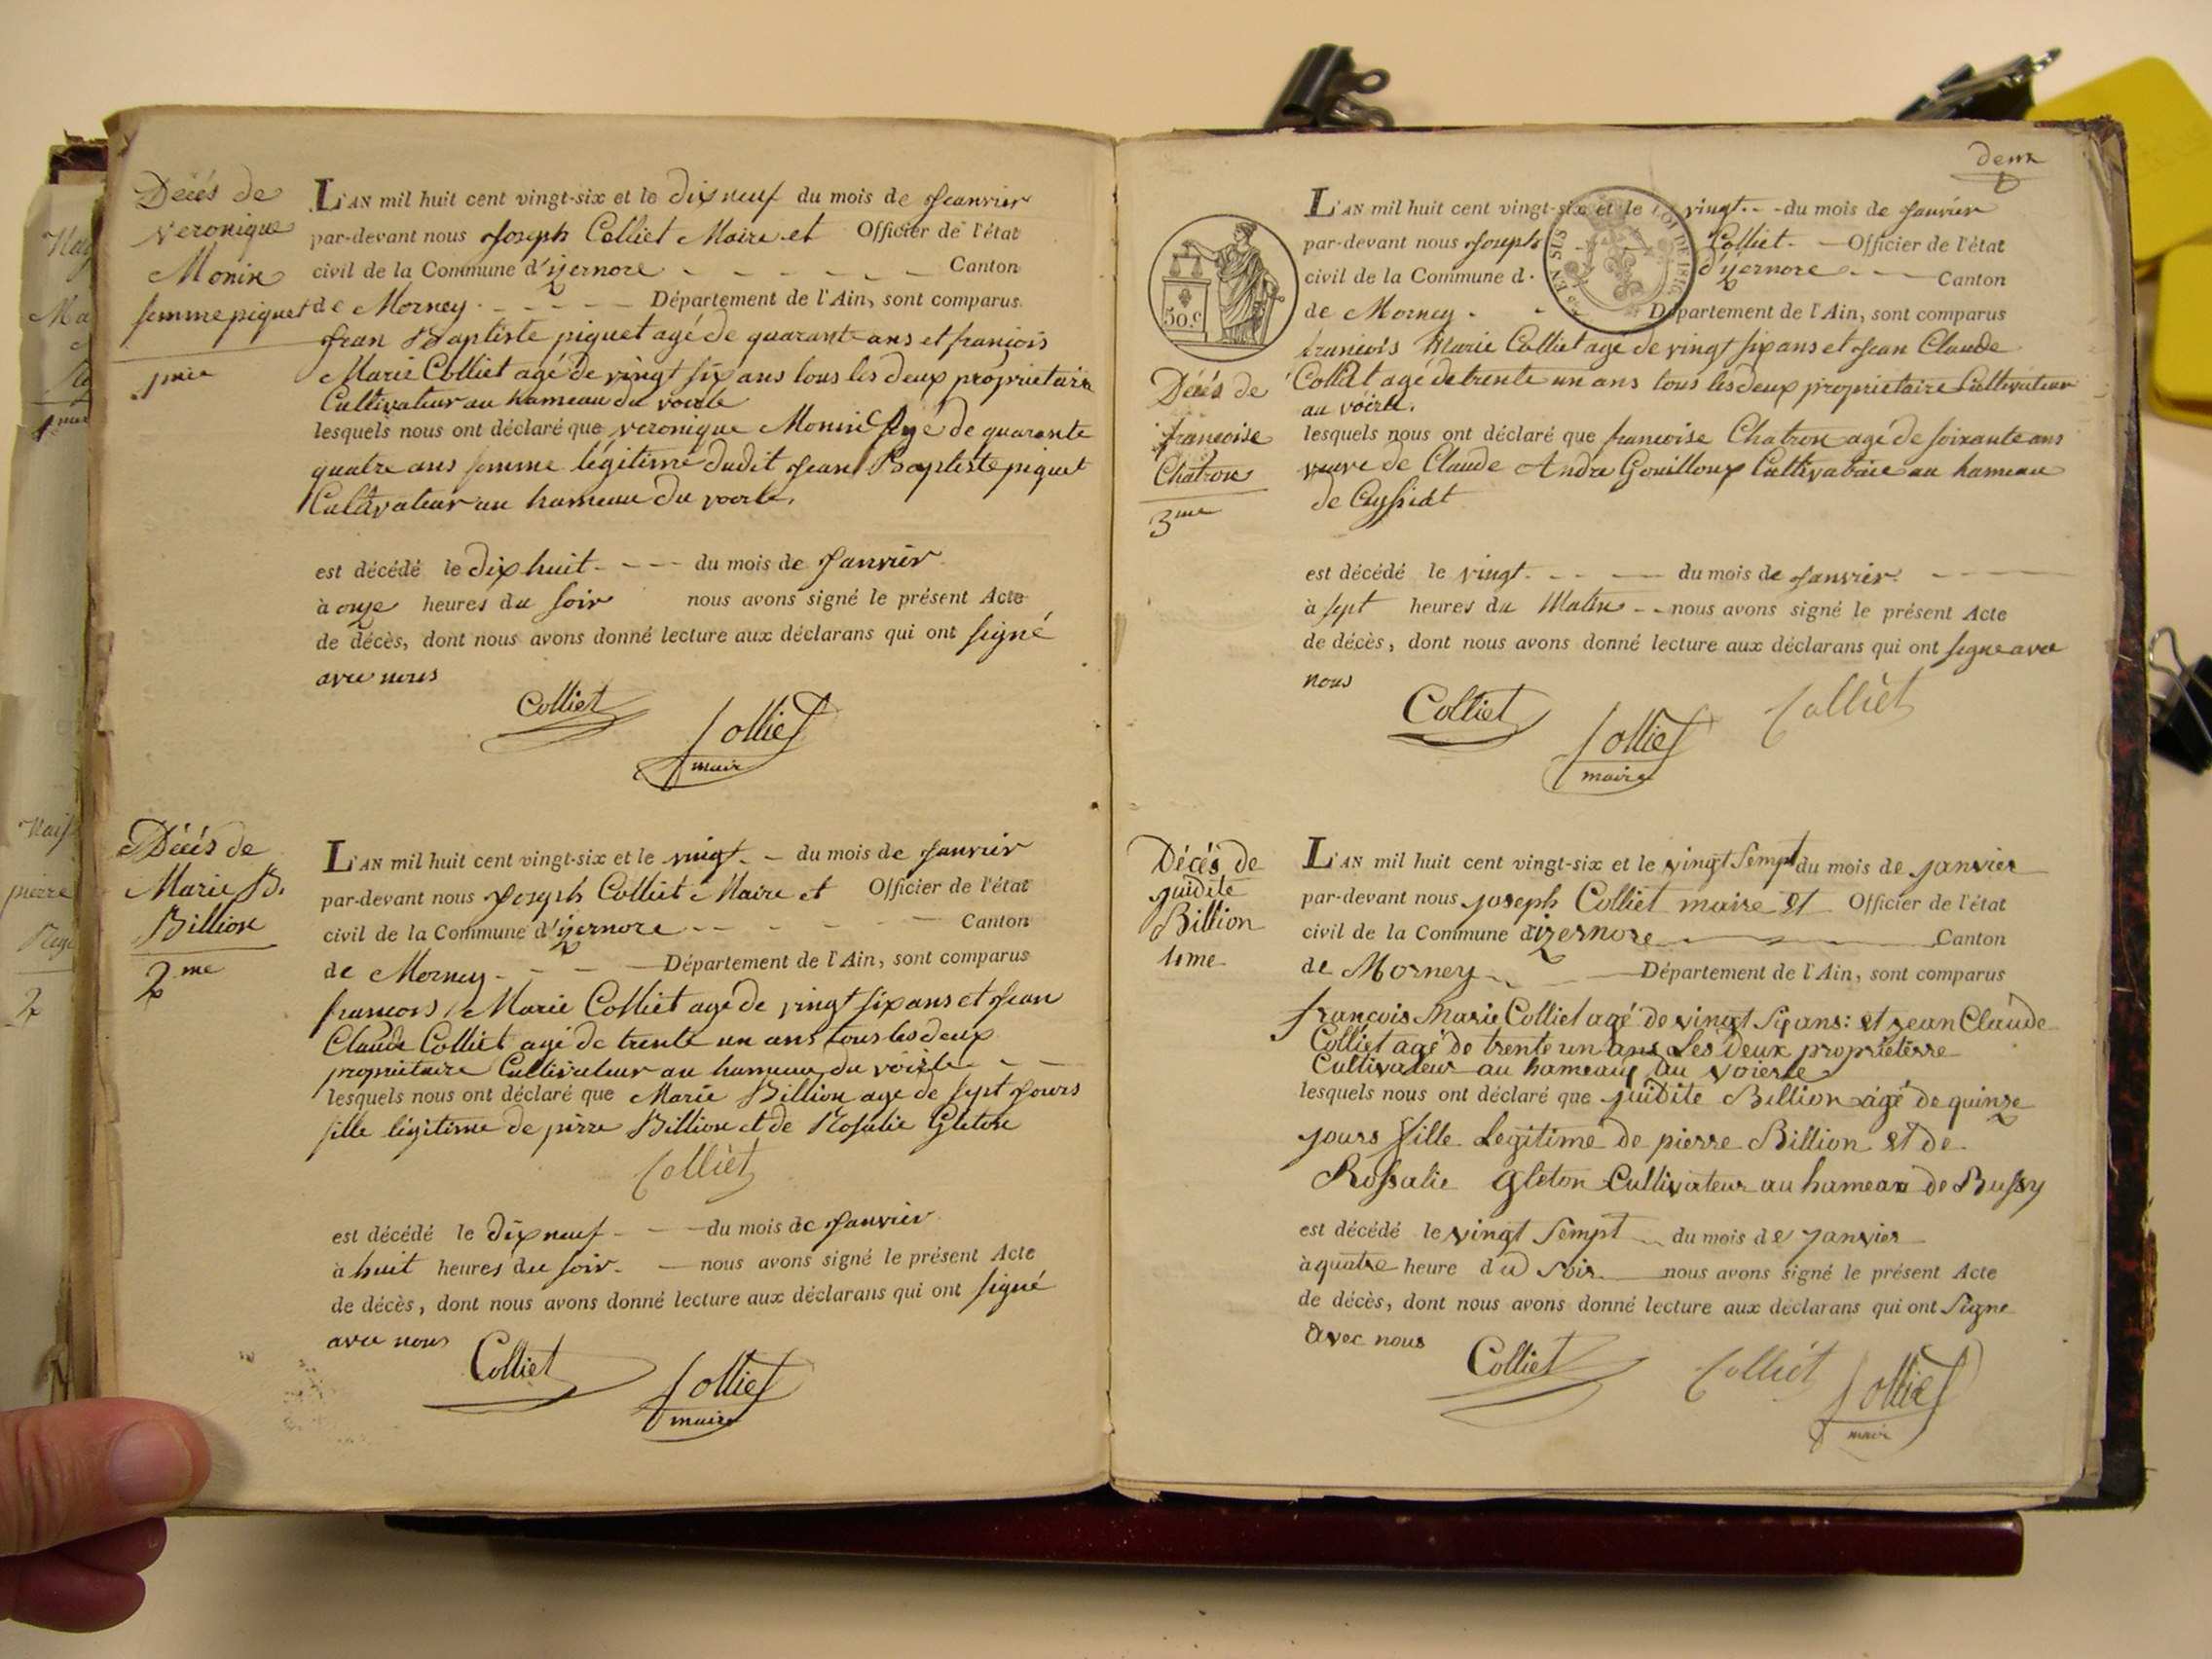 Décés de
veronique
Monin
femme piquet
1mie
L'AN mil huit cent vingt-six et le dix neuf du mois de Jeanvier
par-devant nous Joseph Colliet Maire et Officier de l'état
civil de la Commune d'izernore Canton
de Morney Département de l'Ain, sont comparus
Jean Baptiste piquet agé de quarante ans et françois
Marie Colliet agé de vingt six ans tous les deux propriétaire
Cultivateur au hameau du voerle
lesquels nous ont déclaré que veronique Monin agé de quarante
quatre ans femme légitime dudit Jean Baptiste piquet
Cultivateur au hameau du voerle.
est décédé le dix huit du mois de Janvier
à onze heures du soir nous avons signé le présent Acte
de décès, dont nous avons donné lecture aux déclarans qui ont signé
avec nous
Colliet
Colliet
maire
Décés de
Marie B.
Billion
2me
L'AN mil huit cent vingt-six et le vingt du mois de Janvier
par-devant nous Joseph Colliet Maire et Officier de l'état
civil de la Commune d'izernore Canton
de Morney Département de l'Ain, sont comparus
francois Marie Colliet agé de vingt six ans et Jean
Claude Colliet agé de trente un ans tous les deux
propriétaire Cultivateur au hameau du voirle
lesquels nous ont déclaré que Marie Billion agé de sept Jours
fille légitime de pirre Billion et de Rosalie Gleton
Colliet
est décédé le dix neuf du mois de Janvier
à huit heures du soir nous avons signé le présent Acte
de décès, dont nous avons donné lecture aux déclarans qui ont signé
avec nous
Colliet
Colliet
maire
deux
L'AN mil huit cent vingt-six et le vingt du mois de Janvier
par-devant nous Joseph Colliet Officier de l'état
civil de la Commune d. d'izernore Canton
de Mornay Département de l'Ain, sont comparus
50.c
EN SUS
LOI DE 1816
francois Marie Colliet agé de vingt six ans et Jean Claude
Colliet agé de trente un ans tous les deux propriétaire Cultivateur
au voirle.
Décés de
francoise
Chatron
3me
lesquels nous ont déclaré que francoise Chatron agé de soixante ans
veuve de Claude Andre Gouilloux Cultivatrice au hameau
de Ceyssiat
est décédé le vingt du mois de Janvier
à sept heures du Matin nous avons signé le présent Acte
de décès, dont nous avons donné lecture aux déclarans qui ont signe avec
nous
Colliet
Colliet
Colliet
maire
Décés de
juidite
Billion
4eme
L'AN mil huit cent vingt-six et le vingt sempt du mois de janvier
par-devant nous joseph Colliet maire et Officier de l'état
civil de la Commune d'izernore Canton
de Morney Département de l'Ain, sont comparus
françois Marie Colliet agé de vingt six ans: et jean Claude
Colliet agé de trente un ans Les deux proprieterre
Cultivateur au hameaux du voierle
lesquels nous ont déclaré que juidite Billion agé de quinze
jours fille Legitime de pierre Billion et de
Rossalie gleton Cultivateur au hameau de Bussy
est décédé le vingt sempt du mois de janvier
à quatre heure du soir nous avons signé le présent Acte
de décès, dont nous avons donné lecture aux déclarans qui ont signe
avec nous
Colliet
Colliet
Colliet
mair